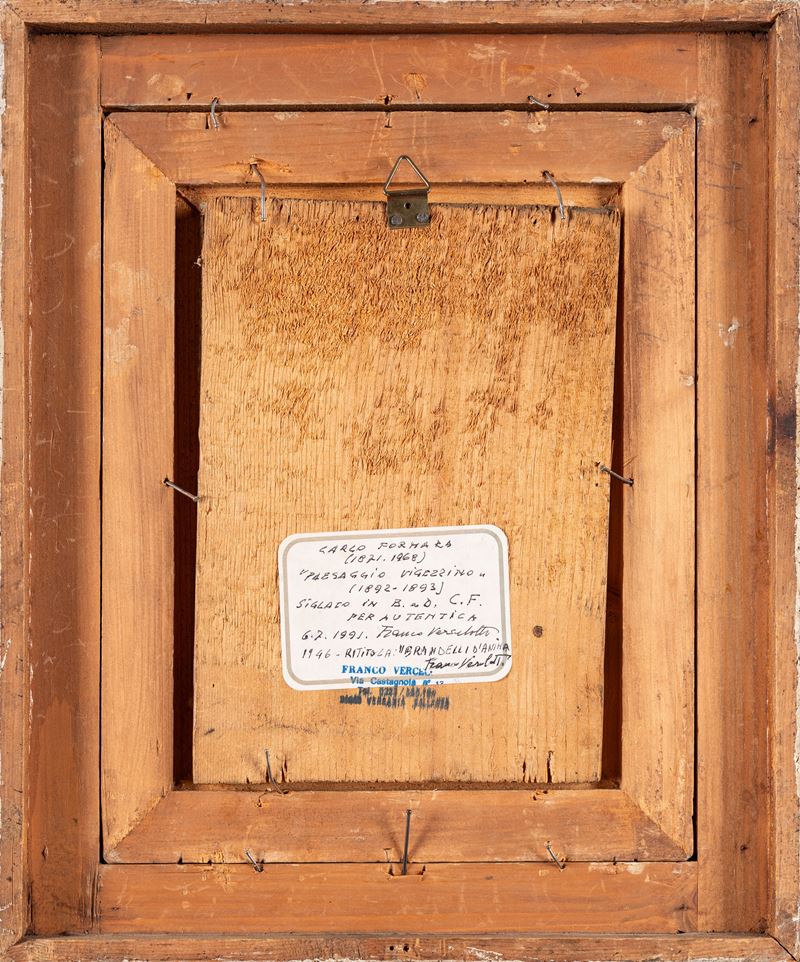 CARLO FORNARA
(1871.1968)
"PAESAGGIO VIGEZZINO"
(1892-1893)
SIGLATO IN B. a D. C.F.
PER AUTENTICA
6.7.1991. Franco Vercelotti
1946 - RITITOLA: "BRANDELLI D'ANIMA
Franco Vercelotti
FRANCO VERCEL
Via Castagnola n° 12
VERBANIA PALLANZA